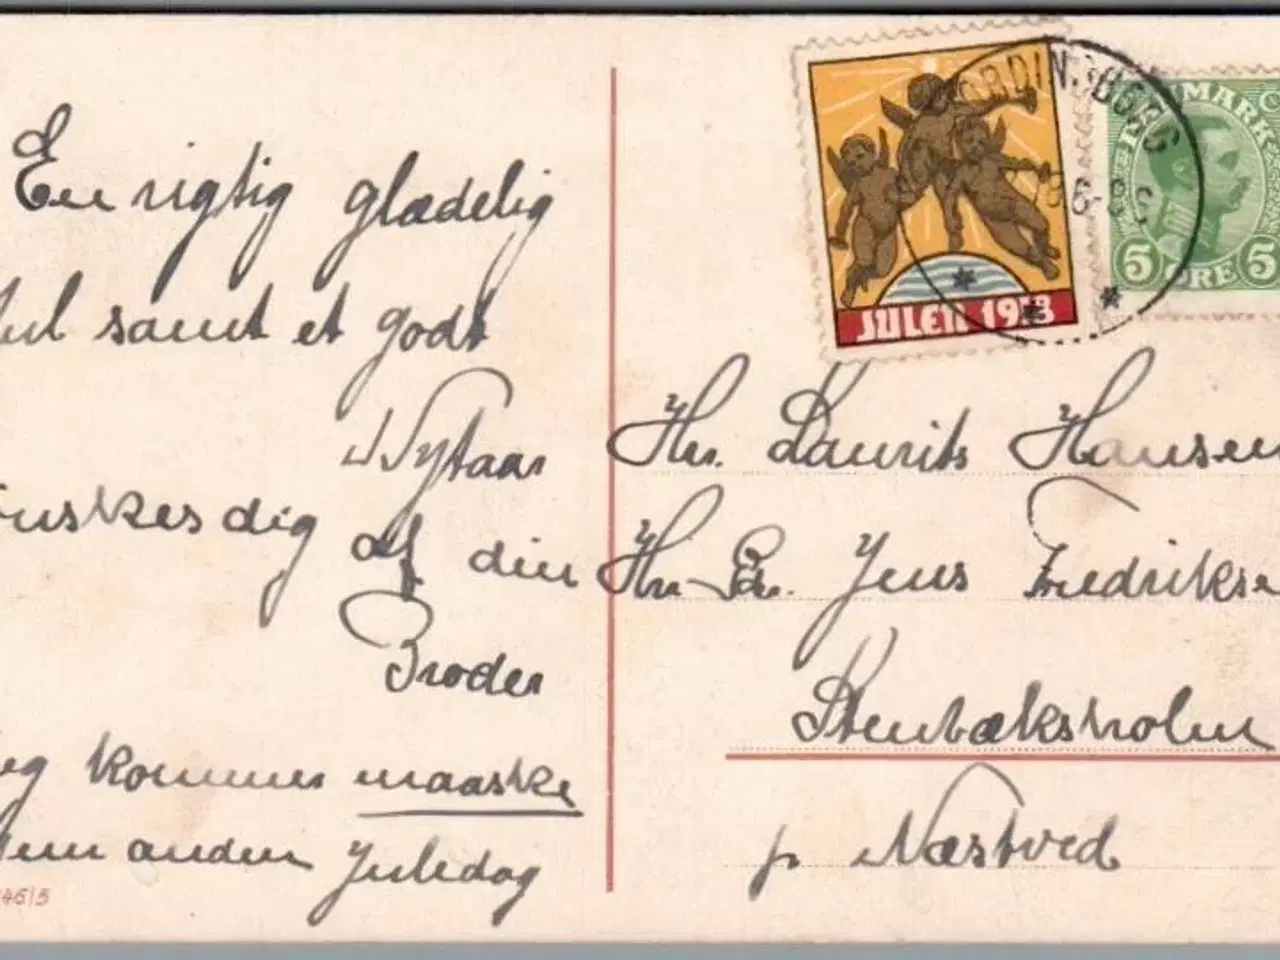 En rigtig glædelig
Jul samt et godt
Nytaar
ønskes dig af din
Broder
Jeg kommer maaske
hjem anden Juledag
46/5
JULEN 1913
VORDINGBORG
DANMARK
5 ØRE 5
Hr. Laurits Hansen
Hr. Gdr. Jens Fredriksen
Stenbæksholm
p. Næstved